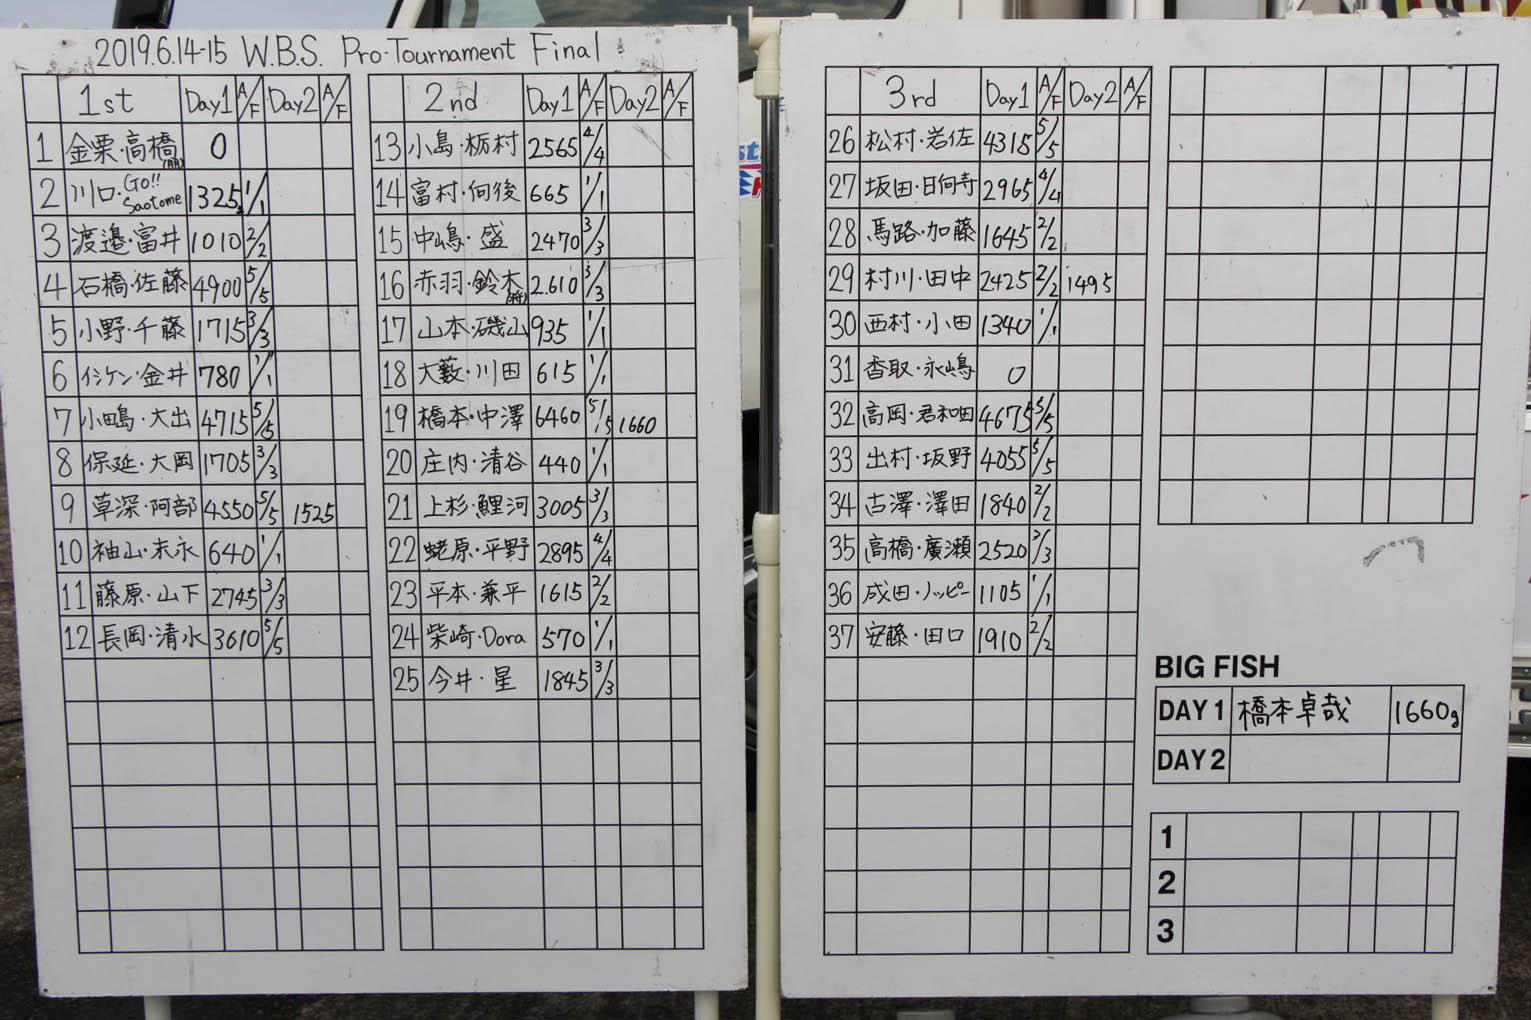 2019.6.14-15 W.B.S. Pro-Tournament Final
1st Day1 A/F Day2 A/F
1 金栗・高橋(朋) 0
2 川口・Go!! Saotome 1325g 1/1
3 渡邉・富井 1010 2/2
4 石橋・佐藤 4900 5/5
5 小野・千藤 1715 3/3
6 イシケン・金井 780 1/1
7 小田島・大出 4715 5/5
8 保延・大岡 1705 3/3
9 草深・阿部 4550 5/5 1525
10 袖山・末永 640 1/1
11 藤原・山下 2745 3/3
12 長岡・清水 3610 5/5
2nd Day1 A/F Day2 A/F
13 小島・栃村 2565 4/4
14 富村・向後 665 1/1
15 中嶋・盛 2470 3/3
16 赤羽・鈴木 2.610 3/3
17 山本・磯山 935 1/1
18 大藪・川田 615 1/1
19 橋本・中澤 6460 5/5 1660
20 庄内・清谷 440 1/1
21 上杉・鯉河 3005 3/3
22 蛯原・平野 2895 4/4
23 平本・兼平 1615 2/2
24 柴崎・Dora 570 1/1
25 今井・星 1845 3/3
3rd Day1 A/F Day2 A/F
26 松村・岩佐 4315 5/5
27 坂田・日向寺 2965 4/4
28 馬路・加藤 1645 2/2
29 村川・田中 2425 2/2 1495
30 西村・小田 1340 1/1
31 香取・永嶋 0
32 高岡・君和田 4675 5/5
33 出村・坂野 4055 5/5
34 古澤・澤田 1840 2/2
35 高橋・廣瀬 2520 3/3
36 成田・ノッピー 1105 1/1
37 安藤・田口 1910 2/2
BIG FISH
DAY 1 橋本卓哉 1660g
DAY 2
1
2
3